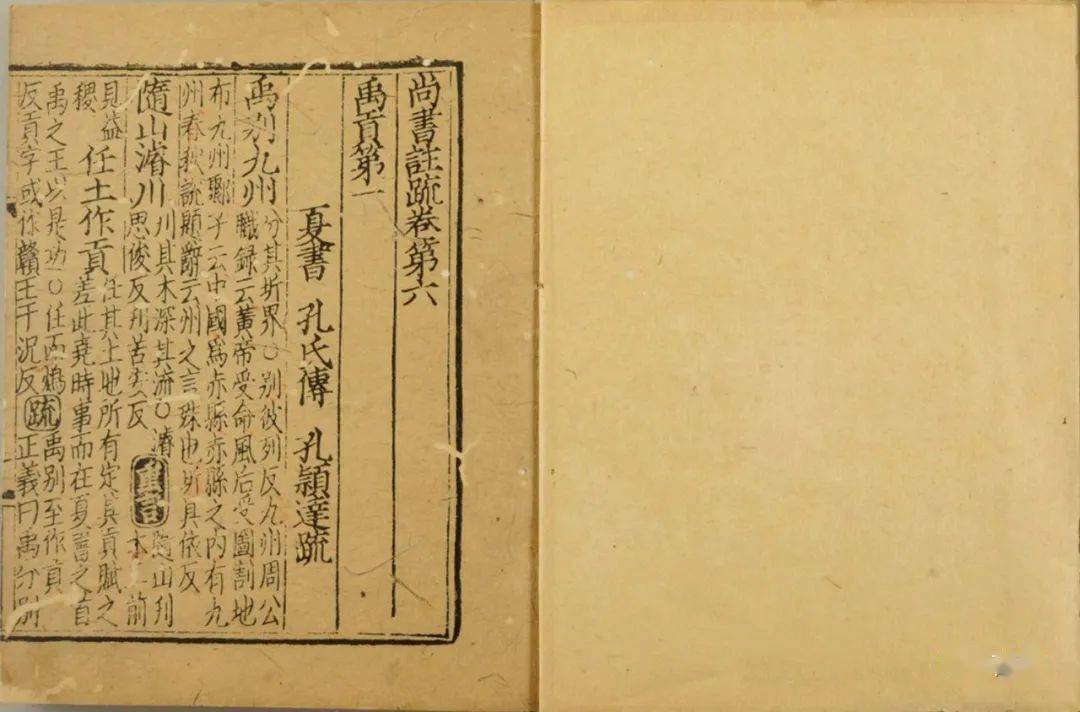 尚書註疏卷第六
禹貢第一
夏書 孔氏傳 孔穎達疏
禹別九州
分其圻界○別彼列反九州周公
職録云黃帝受命風后受圖割地
布九州鄹子云中國爲赤縣赤縣之内有九
州春秋說題辭云州之言殊也圻具依反
隨山濬川
刋其木深其流○濬
思俊反刋苦安反
重言
隨山刋
木二前
見益
稷
任土作貢
任其土地所有定其貢賦之
差此堯時事而在夏書之首
禹之王以是功○任而鴆
反貢字或作贛王于况反
疏
禹別至作貢
正義曰禹分別